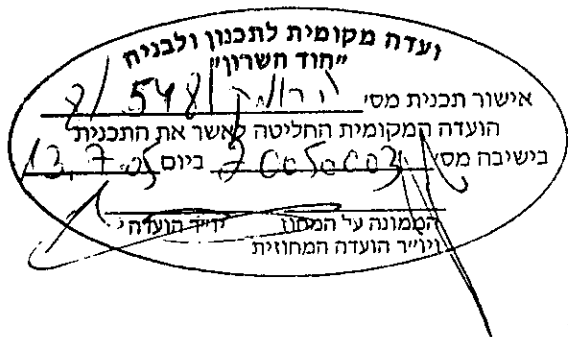 ועדה מקומית לתכנון ולבניה
"הוד השרון"
אישור תכנית מסי 548/
הועדה המקומית החליטה לאשר את התכנית
בישיבה מסי 20050003 ביום 13.7.05
הממונה על המחוז יו"ר הועדה
ויו"ר הועדה המחוזית